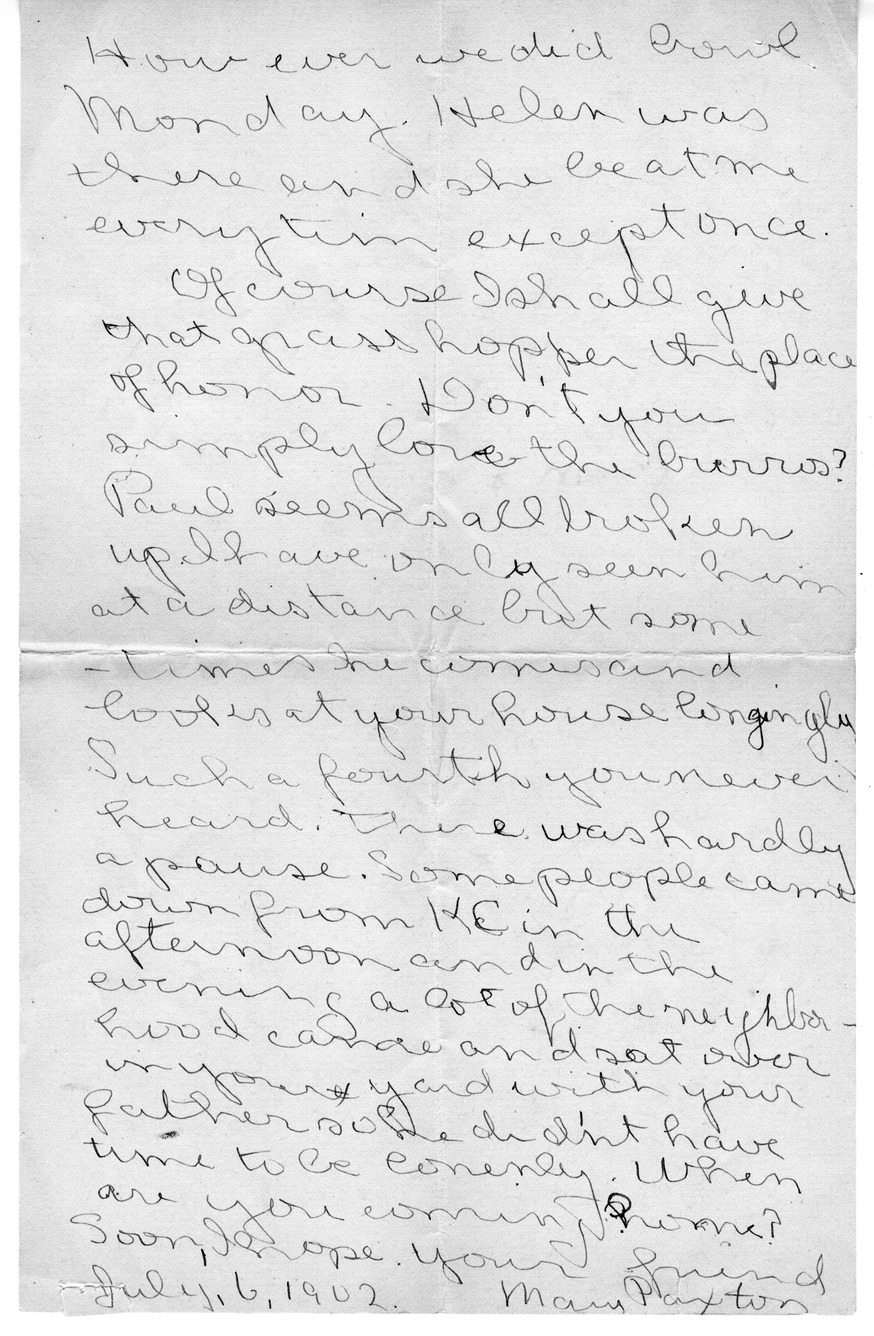 However we did bowl
Monday. Helen was
there and she beat me
everytim except once.
Of course I shall give
that grasshopper the place
of honor. Don't you
simply love the burros?
Paul seems all broken
up. I have only seen him
at a distance but some
-times he comes and
looks at your house longingly
Such a fourth you never
heard. There was hardly
a pause. Some people came
down from KC in the
afternoon and in the
evening a lot of the neighbor-
hood came and sat over
in your yard with your
father so he didn't have
time to be lonenly. When
are you coming home?
Soon, I hope. your friend
July, 6, 1902. Mary Paxton